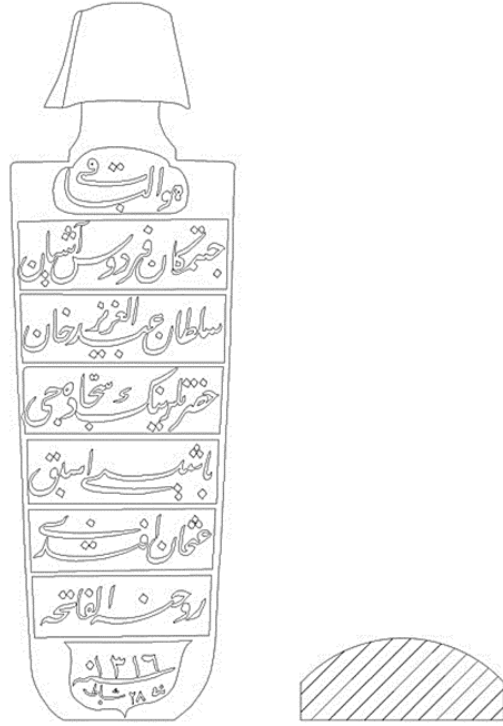 هو الباقی
جنتمکان فردوس آشیان
سلطان عبد العزیز خان
حضرتلرینک سجاده جی
باشیسی اسبق
عثمان افندی
روحنه الفاتحه
سنه ١٣١٦
فی ٢٨ شعبان